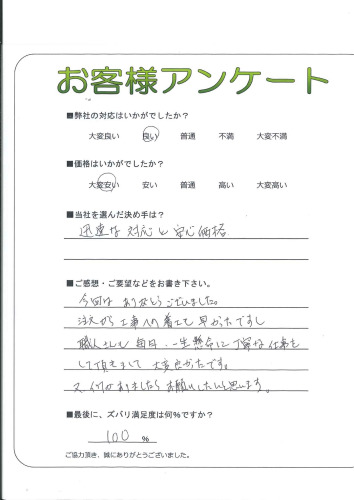 お客様アンケート
■弊社の対応はいかがでしたか?
大変良い 良い 普通 不満 大変不満
■価格はいかがでしたか?
大変安い 安い 普通 高い 大変高い
■当社を選んだ決め手は?
迅速な対応と安心価格
■ご感想・ご要望などをお書き下さい。
今回は ありがとうございました。
注文から工事への着工も早かったですし
職人さんも毎日、一生懸命に丁寧な仕事を
して頂きまして 大変良かったです。
又、何かありましたらお願いしたいと思います。
■最後に、ズバリ満足度は何%ですか?
100 %
ご協力頂き、誠にありがとうございました。